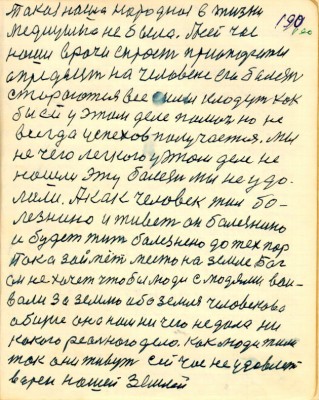 Такая наша народная в жизни 190
медицина не была. Лей час
наши врачи спрост приапорати
определит на человеке его балезн
стараются все силы кладут как
бы ей у этом деле помоч но не
всегда успехов получается. Мы
не чего легкого у этом деле не
нашли эту балезн мы не удо-
лили. А как человек жил бо-
лезнино и живет он балезнино
и будет жить балезнено до тех пор
пока займет место на земле. Бог
он не хочет чтобы люди с людями вои-
вали за землю або земля человекова
а общие она нам ни чего не дала ни
какого реального дело. Как люди жили
так они живут сей час не удовлет
варен нашей Землей